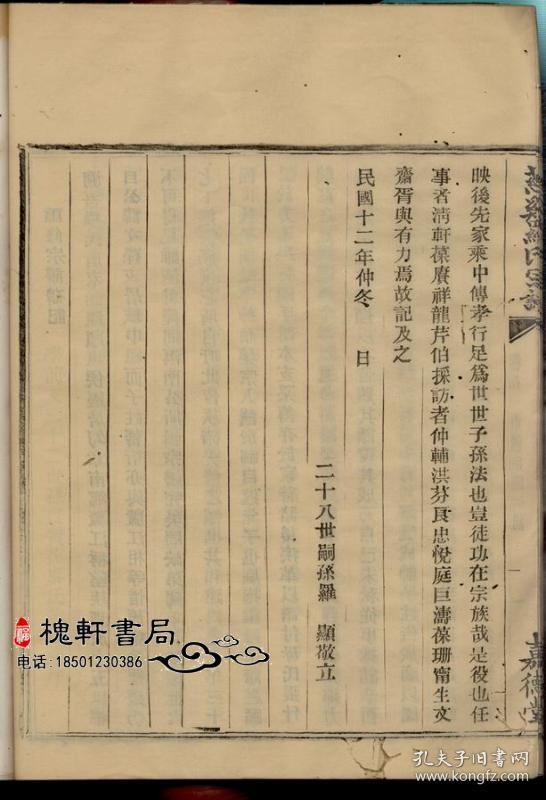 映後先家乘中傳孝行足為世世子孫法也豈徒功在宗族哉是役也任
事者淸軒葆賡祥龍芹伯採訪者仲輔洪芬艮忠悅庭巨濤葆珊甯生文
齋胥與有力焉故記及之
民國十二年仲冬 日
二十八世嗣孫羅 顯敬立
嘉德堂
槐軒書局
电话:18501230386
孔夫子旧书网
www.kongfz.com